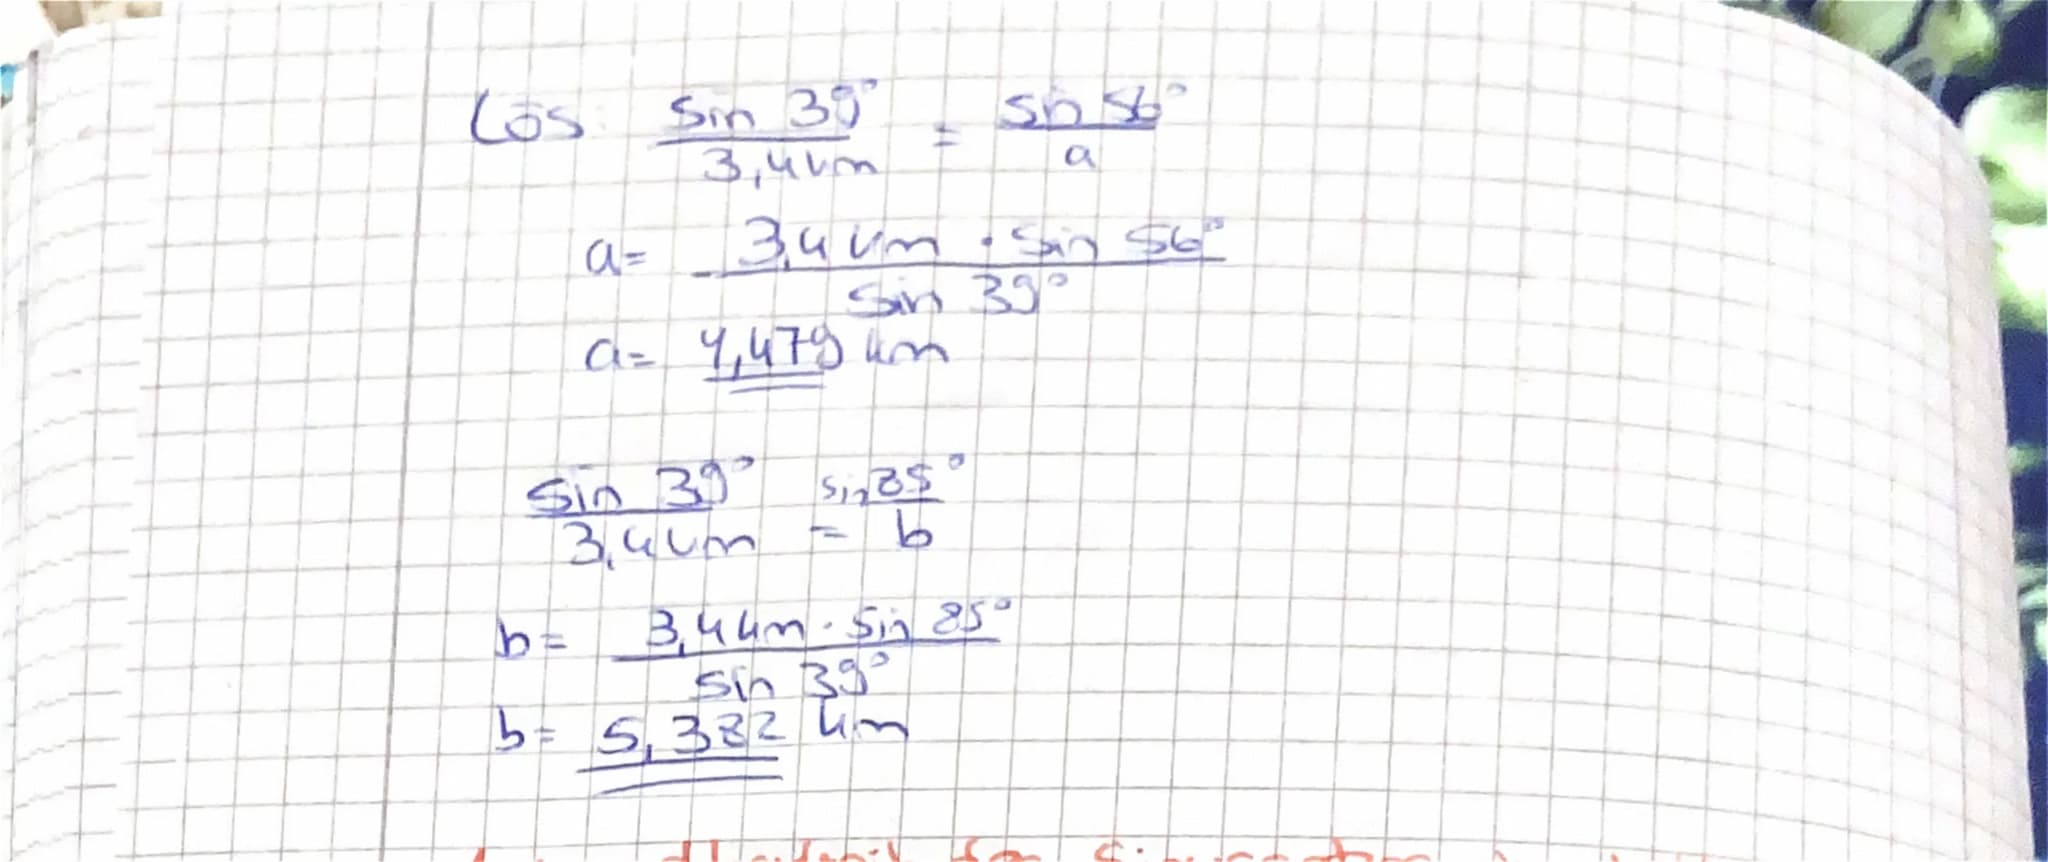 Lös: sin 39° / 3,4 km = sin 56° / a
a = 3,4 km · sin 56° / sin 39°
a = 4,479 km
sin 39° / 3,4 km = sin 85° / b
b = 3,4 km · sin 85° / sin 39°
b = 5,382 km